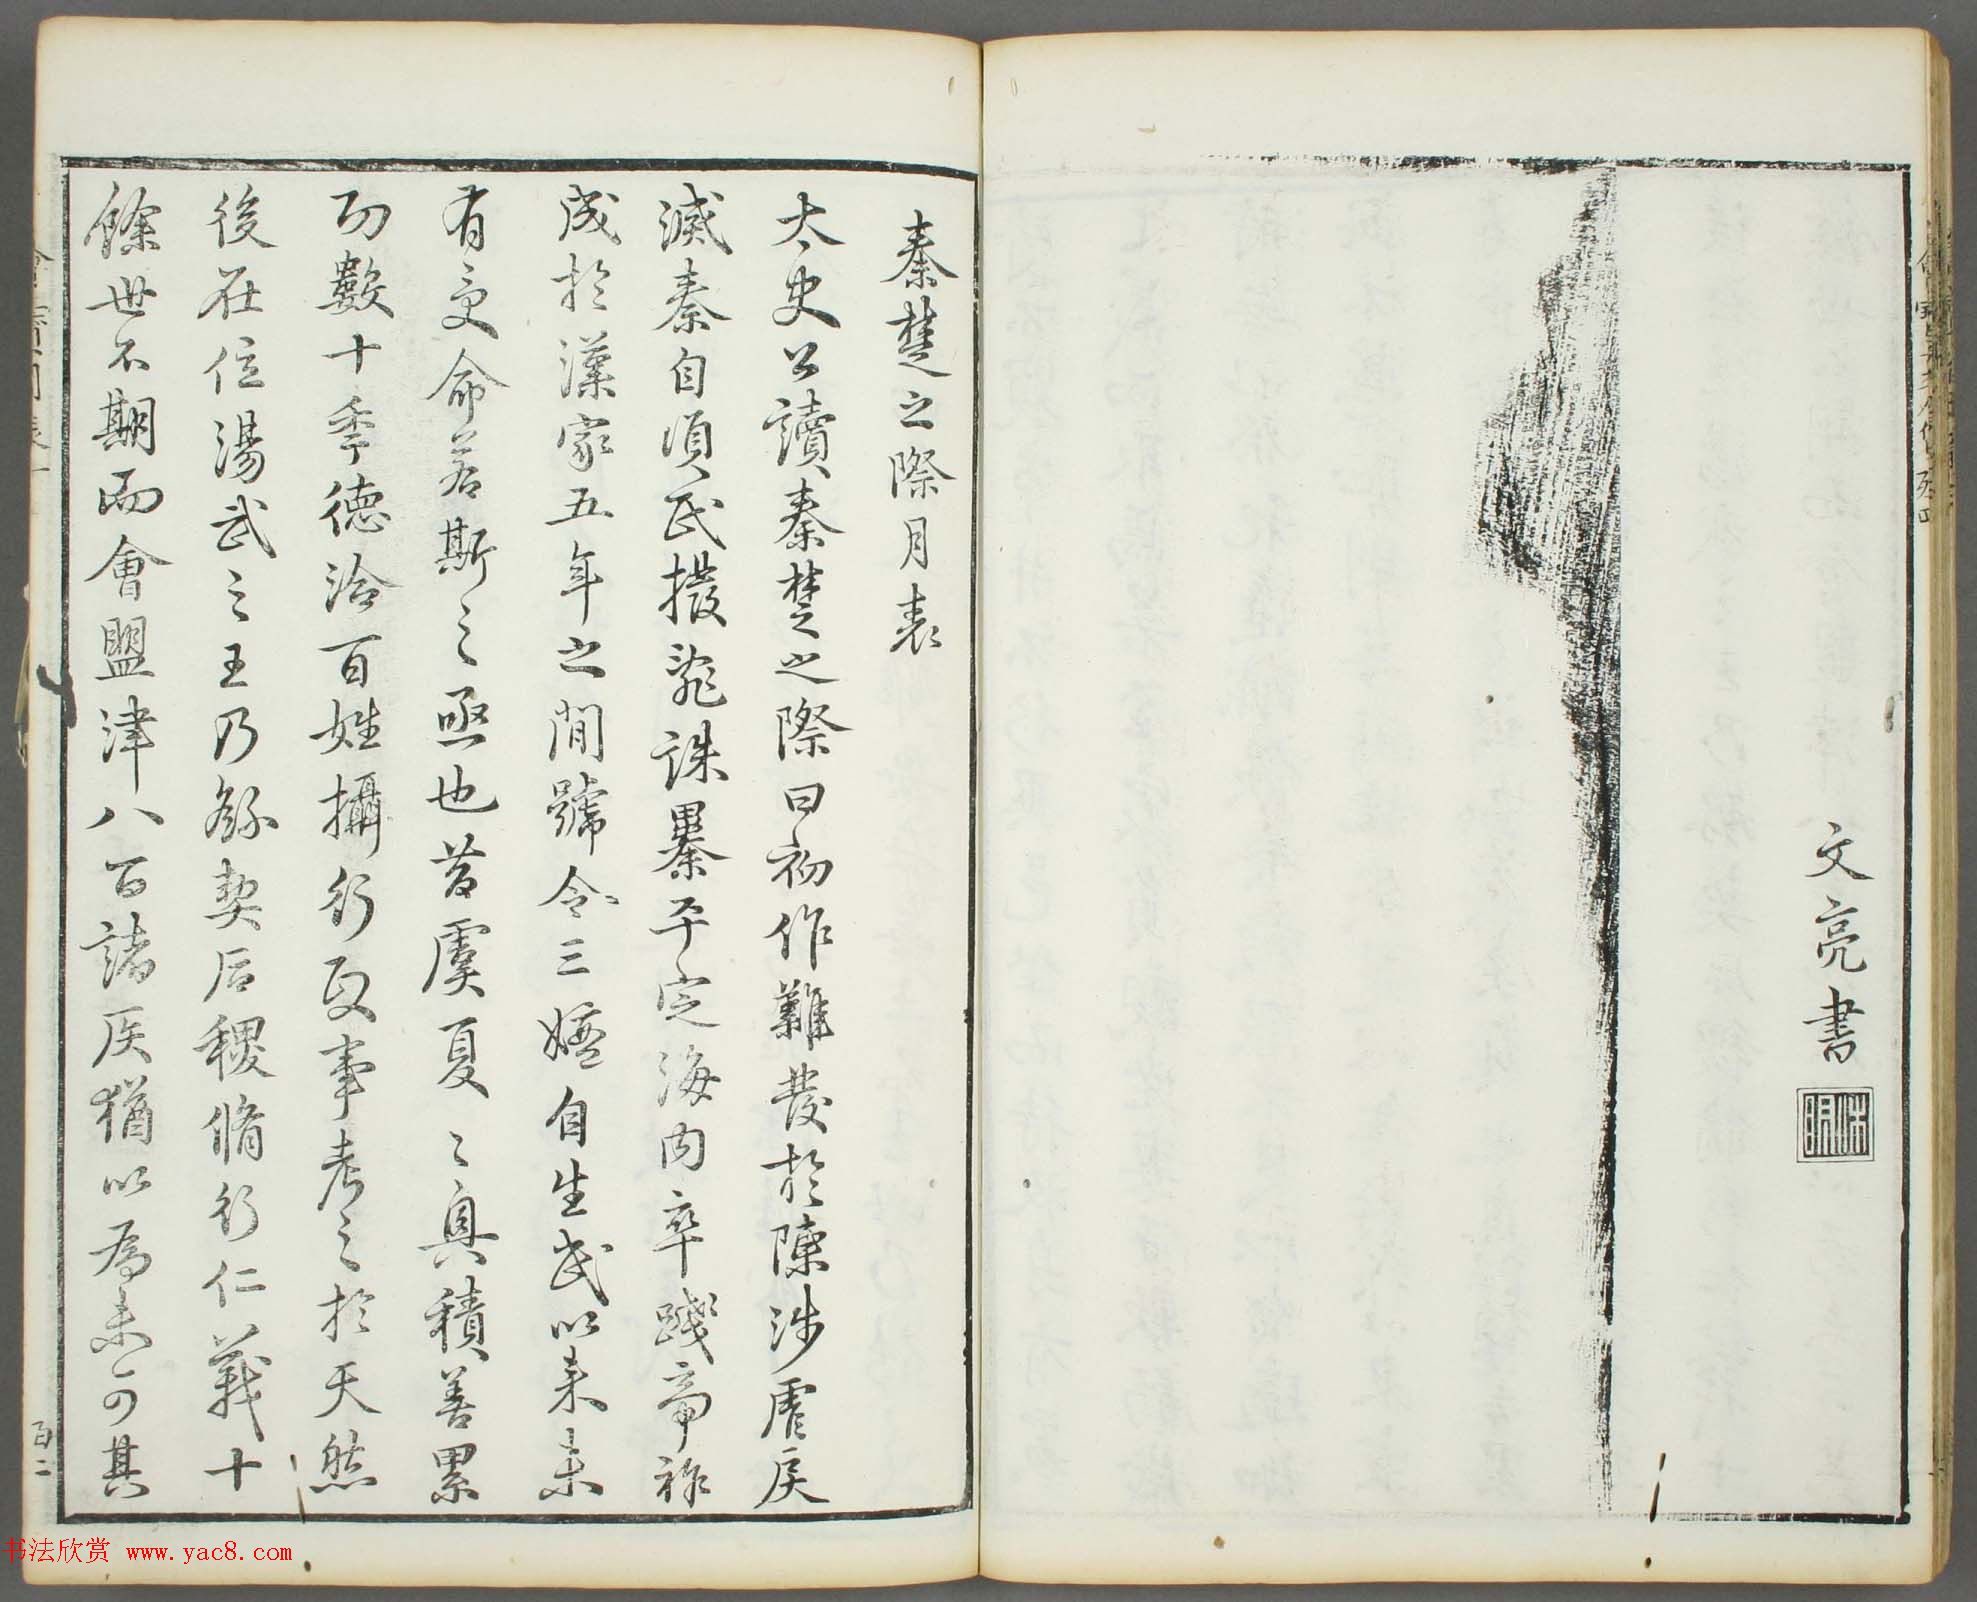 文亮書
秦楚之際月表
太史公讀秦楚之際曰初作難發於陳涉虐戾
滅秦自項氏撥亂誅暴平定海內卒踐帝祚
成於漢家五年之間號令三嬗自生民以來未
有受命若斯之亟也昔虞夏之興積善累
功數十年德洽百姓攝行政事考之於天然
後在位湯武之王乃繇契后稷脩行仁義十
餘世不期而會盟津八百諸侯猶以為未可其
百二
书法欣赏 www.yac8.com